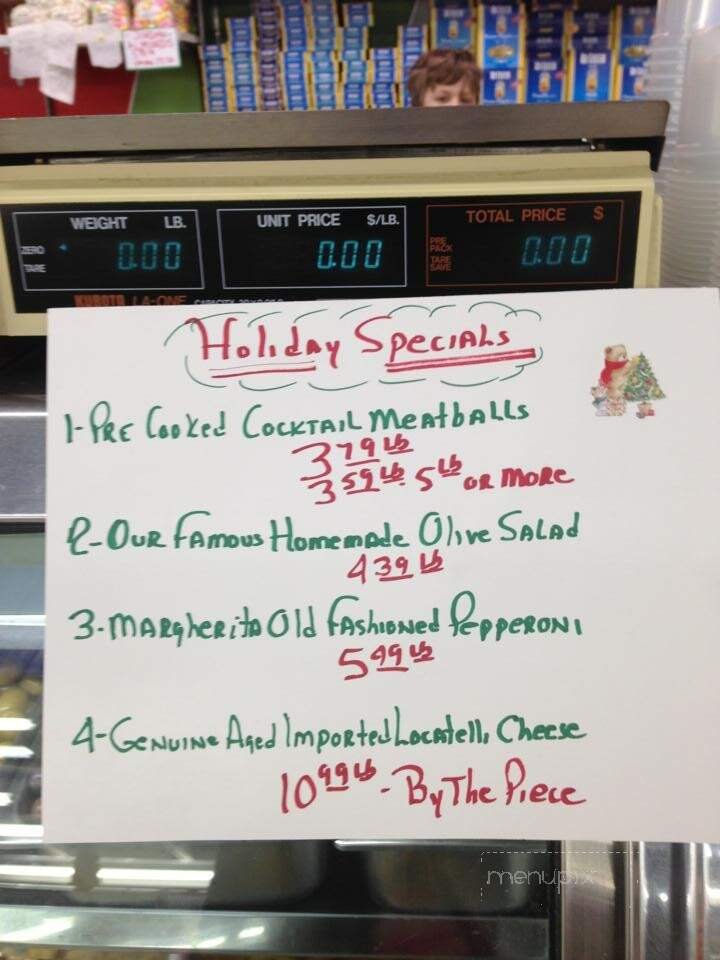 WEIGHT LB.
UNIT PRICE $/LB.
TOTAL PRICE $
ZERO
TARE
0.00
0.00
PRE PACK
TARE SAVE
0.00
KUBOTA LA-ONE
Holiday Specials
1-Pre Cooked Cocktail Meatballs
3 79 lb
3 59 lb. 5 lb or more
2-Our Famous Homemade Olive Salad
4 39 lb
3-Margherita Old Fashioned Pepperoni
5 49 lb
4-Genuine Aged Imported Locatelli Cheese
10 99 lb - By The Piece
menupix